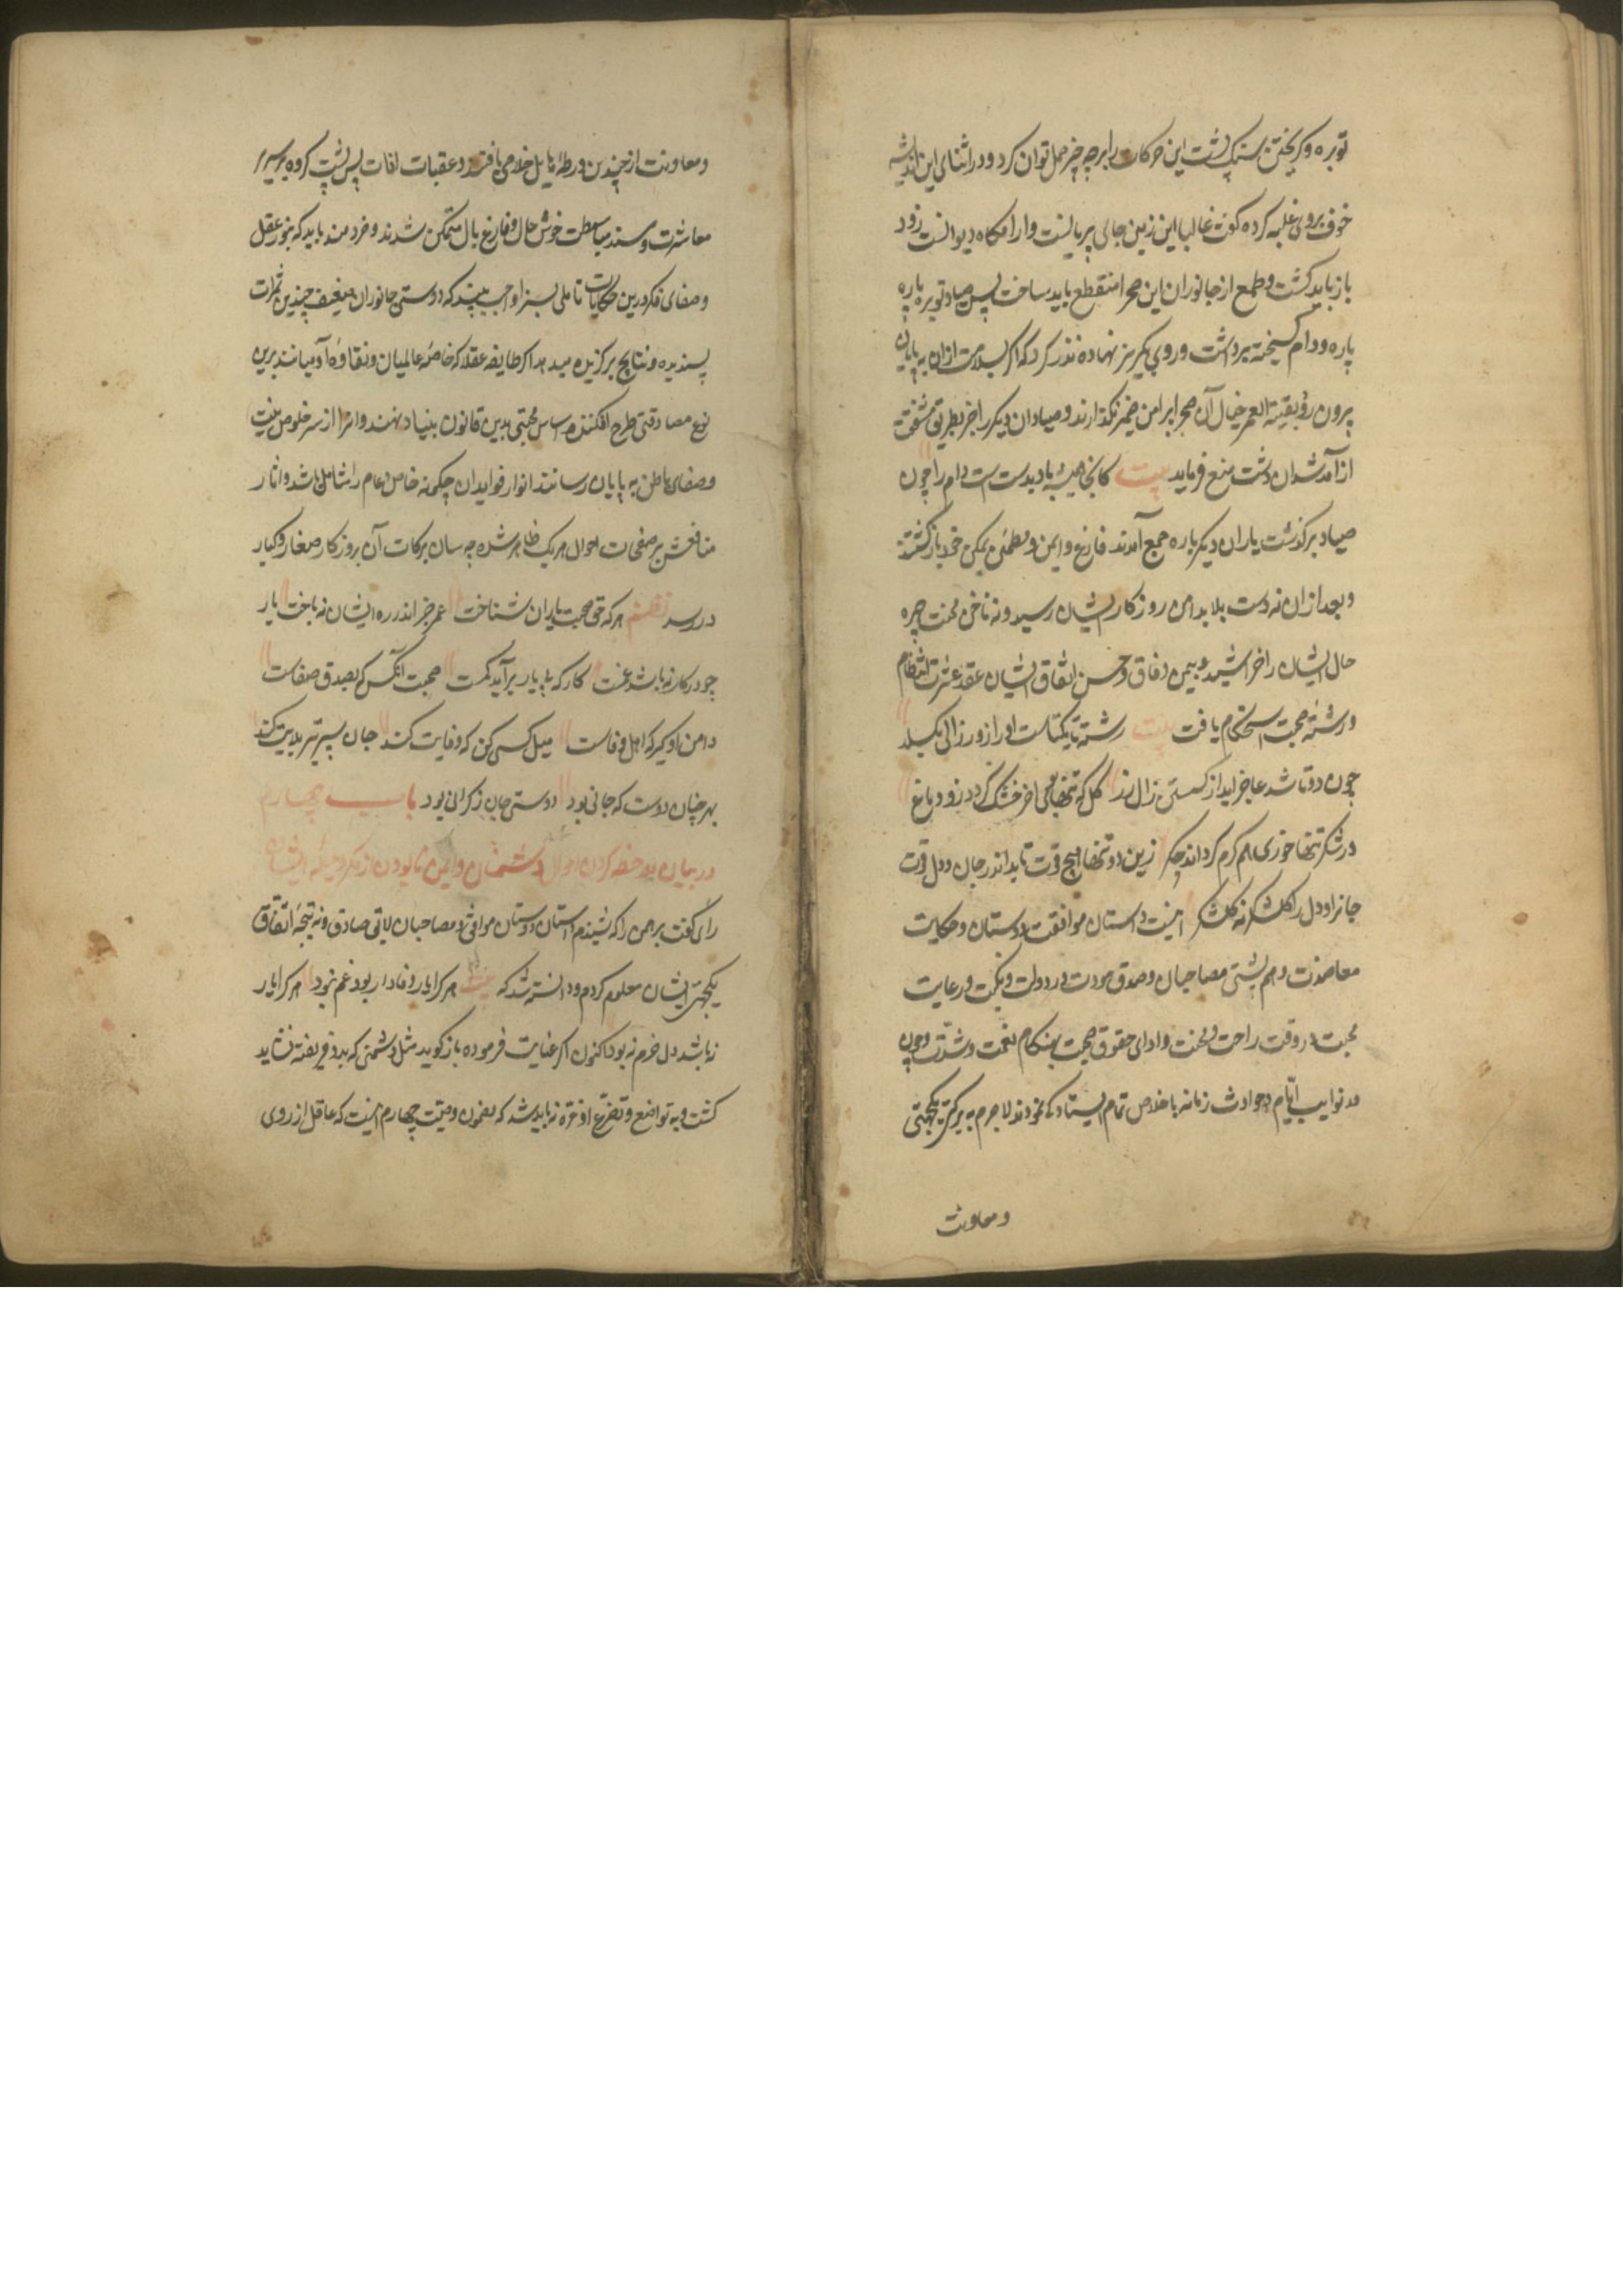 توبره و کریختن سنک پشت این حرکات را بر چه چیز حمل توان کرد و در اثنای این اندیشه
خوف بروی غلبه کرده کفت غالبا این زمین جای پریانست و ارامکاه دیوانست زود
باز باید کشت و طمع از جانوران این صحرا منقطع باید ساخت پس صیاد توبره پاره
پاره و دام کسیخته برداشت و روی بکریز نهاده نذر کرد که اکر بسلامت ازان بیابان
بیرون رود بقیت العمر خیال آن صحرا پیرامن ضمیر نکذارند و صیادان دیکر را نیز بطریق شفقت
از آمد شد آن دشت منع فرماید بیت کانجا همیشه باد بدست است دام را چون
صیاد برکذشت یاران دیکر باره جمع آمدند فارغ و ایمن و مطمئن بمسکن خود بازکشتند
و بعد ازان نه دست بلا بدامن روزکار ایشان رسید و نه ناخن محنت چهره
حال ایشان را خراشید و بیمن وفاق و حسن اتفاق ایشان عقد عشرت انتظام
و رشته صحبت استحکام یافت بیت رشته تا یکتاست او را زور زالی بکسلد
چون دو تا شد عاجز اید از کسستن زال زر کل که تنها بویی اخر خشک کردد زود دماغ
ور شکر تنها خوری هم کرم کرداند جکر زین دو تنها هیچ قوت ناید اندر جان و دل قوت
جانرا و دل را کلشکر نه کلشکر اینست داستان موافقت دوستان و حکایت
معاضدت و هم پشتی مصاحبان و صدق مودت در دولت و نکبت و رعایت
محبت در وقت راحت و محنت و ادای حقوق صحبت بهنکام نعمت و شدت و چون
در نوایب ایام و حوادث زمانه باخلاص تمام ایستادکی نمودند لاجرم به برکت یکجهتی
و معاونت
و معاونت از چندین ورطه هایل خلاصی یافتند و عقبات افات پس پشت کرده بر سریر
معاشرت و مسند مباسطت خوش حال و فارغ بال متمکن شدند و خردمند باید که بنور عقل
و صفای فکر درین حکایات تاملی بسزا واجب بیند که دوستی جانوران ضعیف چندین ثمرات
پسندیده و نتایج برکزیده میدهد اکر طایفه عقلا که خاصه عالمیان و نقاوه آدمیانند برین
نوع مصادقتی طرح افکنند و اساس محبتی بدین قانون بنیاد نهند و انرا از سر خلوص نیت
و صفای باطن به پایان رسانند انوار فواید ان چکونه خاص و عام را شامل باشد و اثار
منافعش بر صفحات احوال هر یک ظاهر شده چه سان برکات آن بروزکار صغار و کبار
در رسد نظم هر که حق صحبت یاران شناخت عمر جز اندر ره ایشان نه باخت یار
چو در کار نباشد غمست کار که بی یار بر آید کمست صحبت آنکس که بصدق و صفاست
دامن او کیر که اهل وفاست میل کسی کن که وفایت کند جان سپر تیر بلایت کند
بهر چنان دوست که جانی بود دوستی جان ز کرانی بود باب چهارم
در بیان ملاحظه کردن احوال دشمنان و ایمن نابودن از مکر و حیله ایشان
رای کفت برهمن را که شنیدم داستان دوستان موافق و مصاحبان لایق صادق و نتیجه اتفاق
یکجهتی ایشان معلوم کردم و دانسته شد که بیت هر کرا یار وفادار بود غم نبود هر کرا یار
نباشد دل خرم نه بود اکنون اکر عنایت فرموده باز کوید مثل دشمنی که بدو فریفته نشاید
کشت و به تواضع و تضرع او غره نباید شد که مضمون وصیت چهارم اینست که عاقل از روی